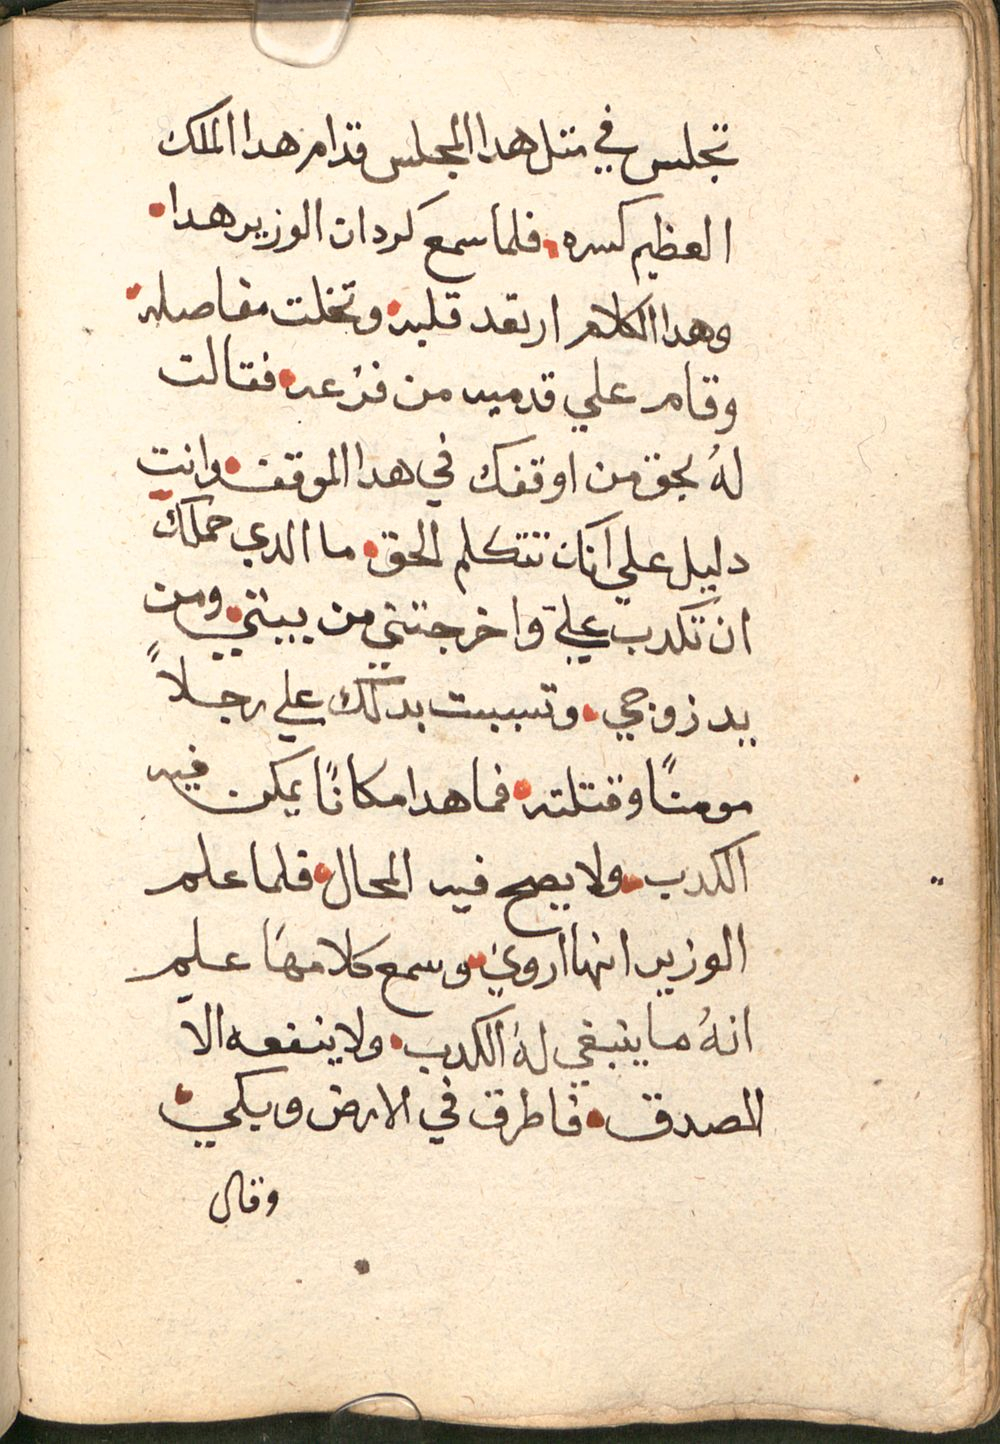 تجلس في متل هدا المجلس قدام هدا الملك
العظيم كسره • فلما سمع كردان الوزير هدا •
وهدا الكلام ارتعد قلبه • وتخلت مفاصله •
وقام علي قدميه من فزعه • فقالت
لهُ بحق من اوقفك في هدا الموقف • وانت
دليل علي انك تتكلم الحق • ما الدي حملك
ان تكدب علي واخرجتني من بيتي • ومن
يد زوجي • وتسببت بدلك علي رجلاً
مومنًا وقتلته • فما هدا مكانًا يمكن فيه
الكدب • ولا يصح فيه المحال • فلما علم
الوزير انها اروي • وسمع كلامها علم
انهُ ما ينبغي لهُ الكدب • ولا ينفعه الا
الصدق • فاطرق في الارض ويبكي •
وقال